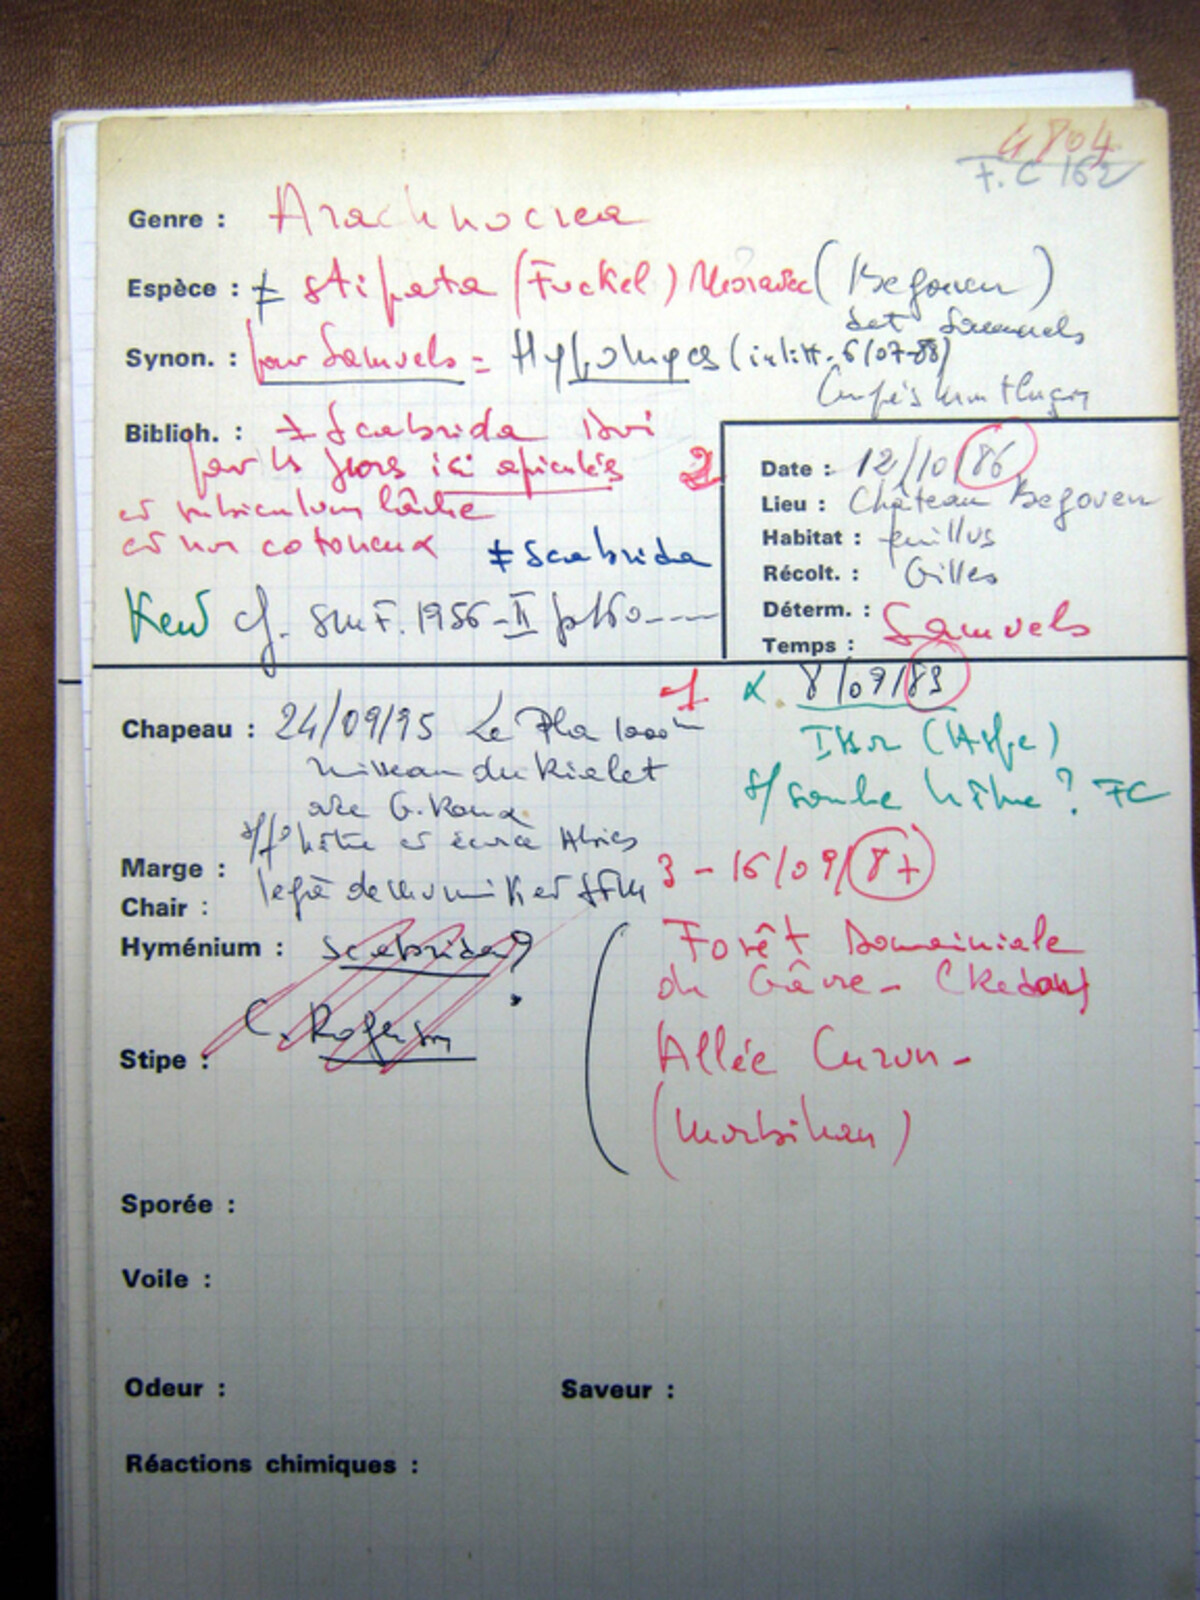 4804
F.C 162
Genre : Arachnocrea
Espèce : ≠ stipata (Fuckel) Moravec (Begouen)
det Samuels
Synon. : pour Samuels = Hypomyces (in litt. 6/07-88)
Biblioh. : ≠ Scabrida
par les spores ici apiculés
et subiculum lâche
et non cotoneux ≠ Scabrida
Kew cf. SMF. 1956-II p160----
2
Date : 12/10/86
Lieu : Château Begouen
Habitat : feuillus
Récolt. : Gilles
Déterm. : Samuels
Temps :
1 8/09/83
(Ariège)
? FC
Chapeau : 24/09/95 Le Pla 1000m
ruisseau du Rialet
avec G. Roux
hêtre et écorce Abies
Marge :
Chair :
3 - 16/09/87
Hyménium : Scabrida?
C. Rogerson
Forêt Domainiale
du Gâvre -
Stipe :
Allée Curun -
(Morbihan)
Sporée :
Voile :
Odeur :
Saveur :
Réactions chimiques :